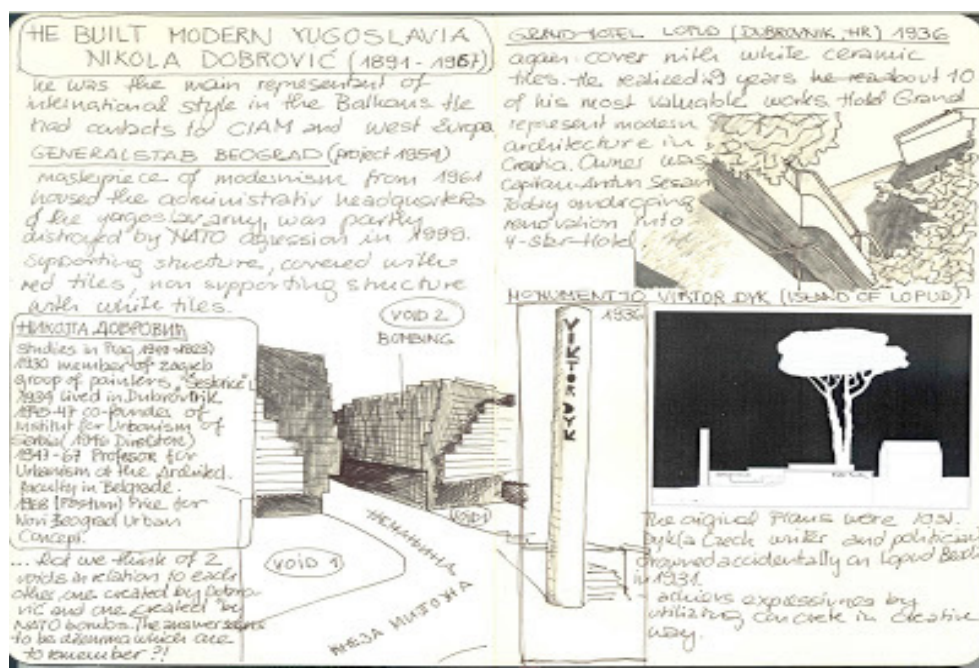 HE BUILT MODERN YUGOSLAVIA
NIKOLA DOBROVIĆ (1891-1967)
he was the main representant of
international style in the Balkans. He
had contacts to CIAM and west Europa
GENERALSTAB BEOGRAD (project 1954)
masterpiece of modernism from 1961
housed the administrativ headquarters
of the yugoslav army, was partly
distroyed by NATO agression in 1999.
Supporting structure, covered with
red tiles, non supporting structure
with white tiles.
НИКОЛА ДОБРОВИЋ
Studies in Prag
1930 member of Zagreb
group of painters
1934 lived in Dubrovnik
1945-47 co-founder of
Institut for Urbanism of
Serbia (1946 Direktor)
1947-67 Profesor for
Urbanism at the
faculty in Belgrade.
1968 (Postum) Price for
Novi Beograd Urban
Concept.
... but we think of 2
voids in relation to each
other, one created by Dobro-
vić and one created by
NATO bombs. The answer seems
to be dilemma which one
to remember?!
VOID 2
BOMBING
VOID 1
VOID 1
НЕМАЊИНА
КНЕЗА МИЛОША
GRAND HOTEL LOPUD (DUBROVNIK, HR) 1936
again cover with white ceramic
tiles. He realized 9 years about 10
of his most valuable works. Hotel Grand
represent modern
architecture in
Croatia. Owner was
Capitan Antun Sesan
Today undergoing
renovation into
4-ster-Hotel
MONUMENT TO VIKTOR DYK (ISLAND OF LOPUD)
1936
VIKTOR DYK
The original Plans were 1931.
Dyk (a Czech writer and politician)
drowned accidentally on Lopud Beach
in 1931.
achievs expressivnes by
utilizing concrete in creative
way.